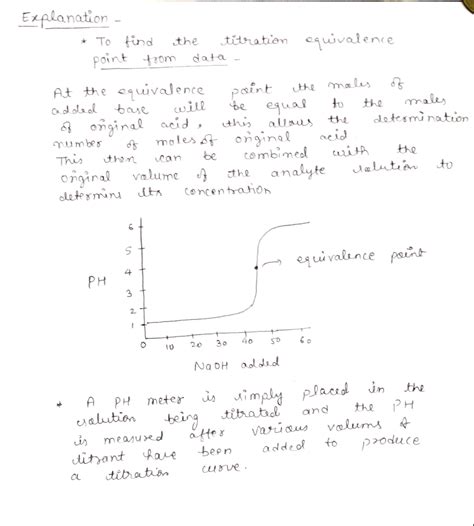 Explanation -
* To find the titration equivalence
point from data -
At the equivalence point the moles of
added base will be equal to the moles
of original acid, this allows the determination
number of moles of original acid
This then can be combined with the
original volume of the analyte solution to
determins its concentration
6
5
4
3
2
1
PH
→ equivalence point
0 10 20 30 40 50 60
NaOH added
* A PH meter is simply placed in the
solution being titrated and the PH
is measured after various volums of
titrant have been added to produce
a titration curve.